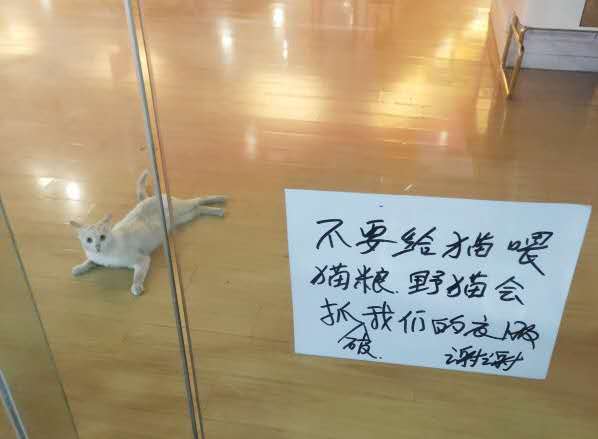 不要给猫喂
猫粮.野猫会
抓我们的衣服
破. 谢谢